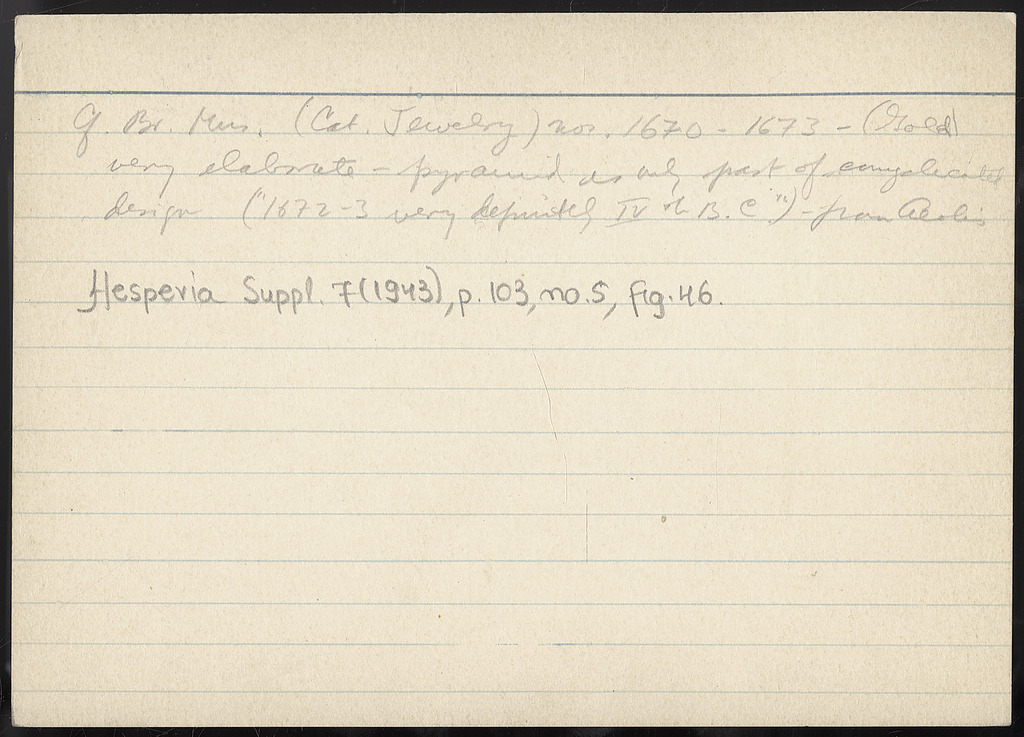 Cf. Br. Mus. (Cat. Jewelry) nos. 1670 - 1673 - (Gold)
very elaborate - pyramid is only part of complicated
design ("1672-3 very definitely IV th B.C.") - from Aeolis
Hesperia Suppl. 7 (1943), p. 103, no. 5, fig. 46.